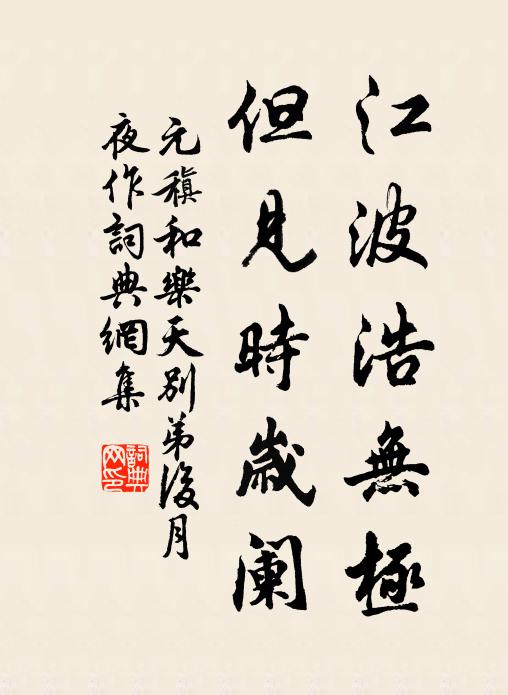 江波浩無極
但見時歲阑
元稹和樂天別弟後月
夜作詞典網集
詞典网印